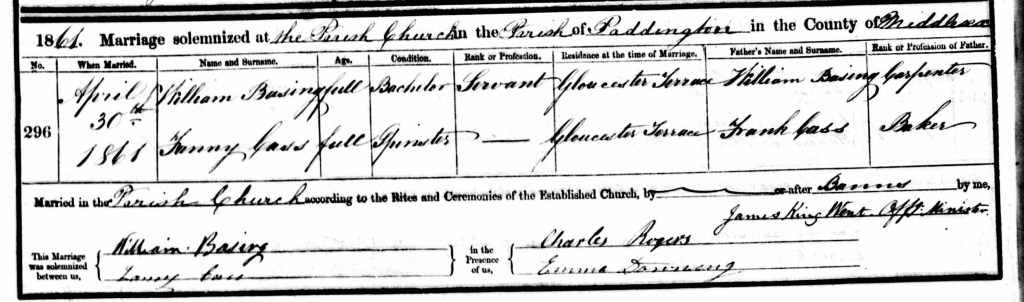 1861. Marriage solemnized at the Parish Church in the Parish of Paddington in the County of Middlesex
No. When Married. Name and Surname. Age. Condition. Rank or Profession. Residence at the time of Marriage. Father's Name and Surname. Rank or Profession of Father.
296 April 30th 1861 William Basing full Bachelor Servant Gloucester Terrace William Basing Carpenter
Fanny Cass full Spinster — Gloucester Terrace Frank Cass Baker
Married in the Parish Church according to the Rites and Ceremonies of the Established Church, by or after Banns by me,
James King Went Offt. Minister
This Marriage was solemnized between us, William Basing Fanny Cass in the Presence of us, Charles Rogers Emma Downing